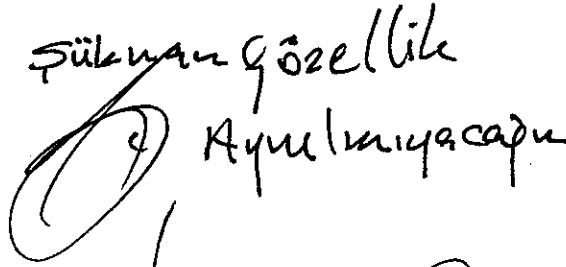 Şükman Gözellik
Ayrılmıyacağın